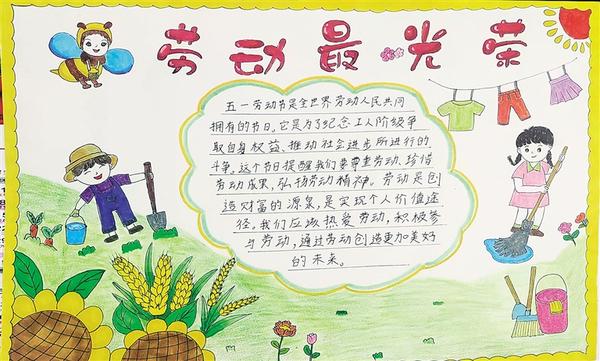 劳动最光荣
五一劳动节是全世界劳动人民共同
拥有的节日。它是为了纪念工人阶级争
取自身权益、推动社会进步所进行的
斗争。这个节日提醒我们要尊重劳动、珍惜
劳动成果,弘扬劳动精神。劳动是创
造财富的源泉,是实现个人价值途
径,我们应该热爱劳动,积极参
与劳动,通过劳动创造更加美好
的未来。